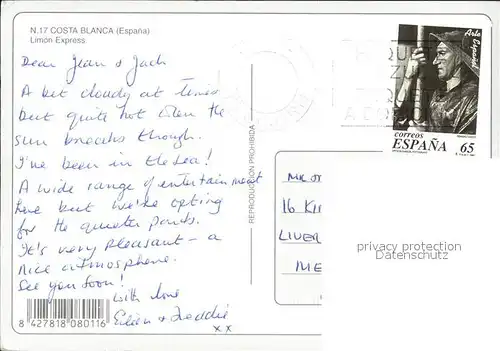 N.17 COSTA BLANCA (España)
Limón Express
Dear Jean & Jack
A bit cloudy at times
but quite hot when the
sun breaks through.
I've been in the sea!
A wide range of entertainment
here but we're opting
for the quieter parts.
It's very pleasant - a
nice atmosphere.
See you soon!
with love
Eileen & Freddie
xx
8 427818 080116
REPRODUCCIÓN PROHIBIDA
Arte Español
correos
ESPAÑA 65
MR
16 KI
LIVER
ME
privacy protection
Datenschutz